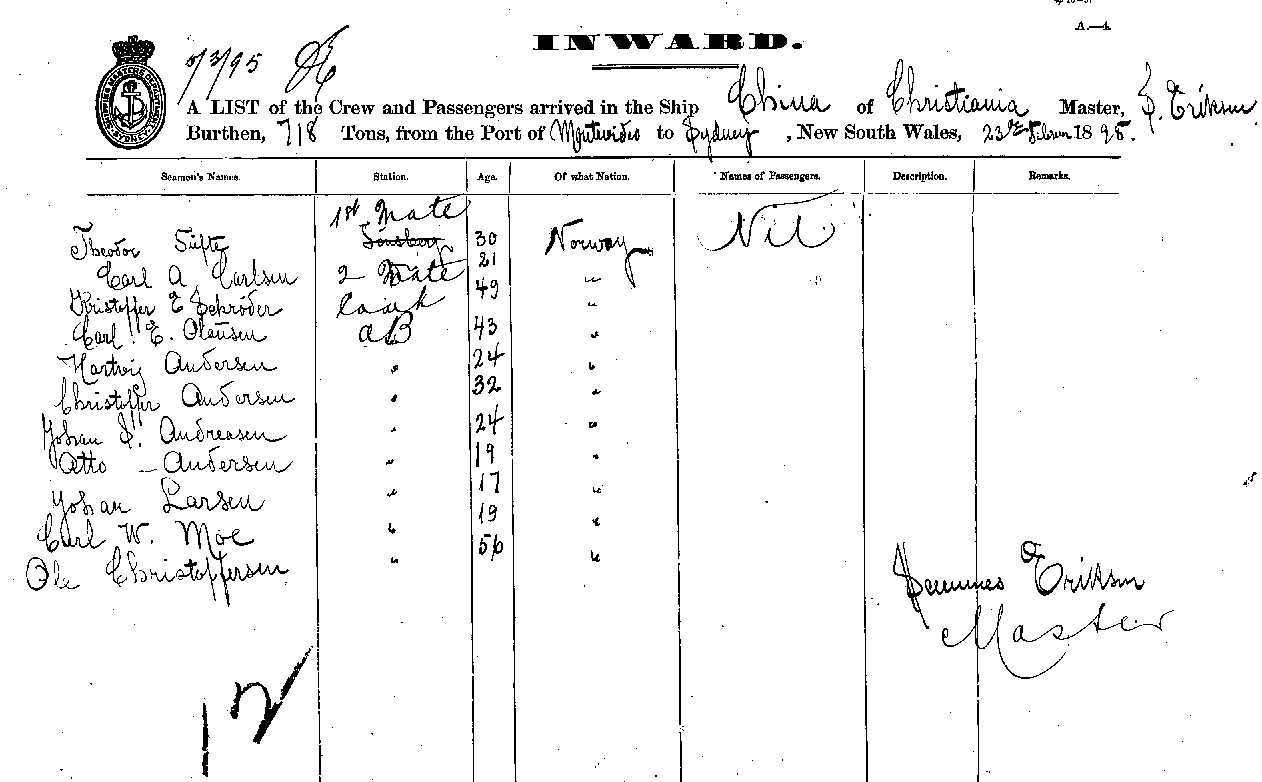 A.—4.
INWARD.
5/3/95
A LIST of the Crew and Passengers arrived in the Ship China of Christiania Master, S. Eriksen
Burthen, 718 Tons, from the Port of Montevideo to Sydney, New South Wales, 23rd Febr 1895.
Seamen's Names. Station. Age. Of what Nation. Names of Passengers. Description. Remarks.
1st Mate
Theodor 30 Norway Nil
Carl A. Carlsen 2 Mate 21 "
Kristoffer E Schröder Cook 49 "
Carl E. Olausen AB 43 "
Hartvig Andersen " 24 "
Christoffer Andersen " 32 "
Johan S. Andreasen " 24 "
Otto – Andersen " 19 "
Johan Larsen " 17 "
Carl W. Moe " 19 "
Ole Christoffersen " 56 "
Eriksen
Master
12